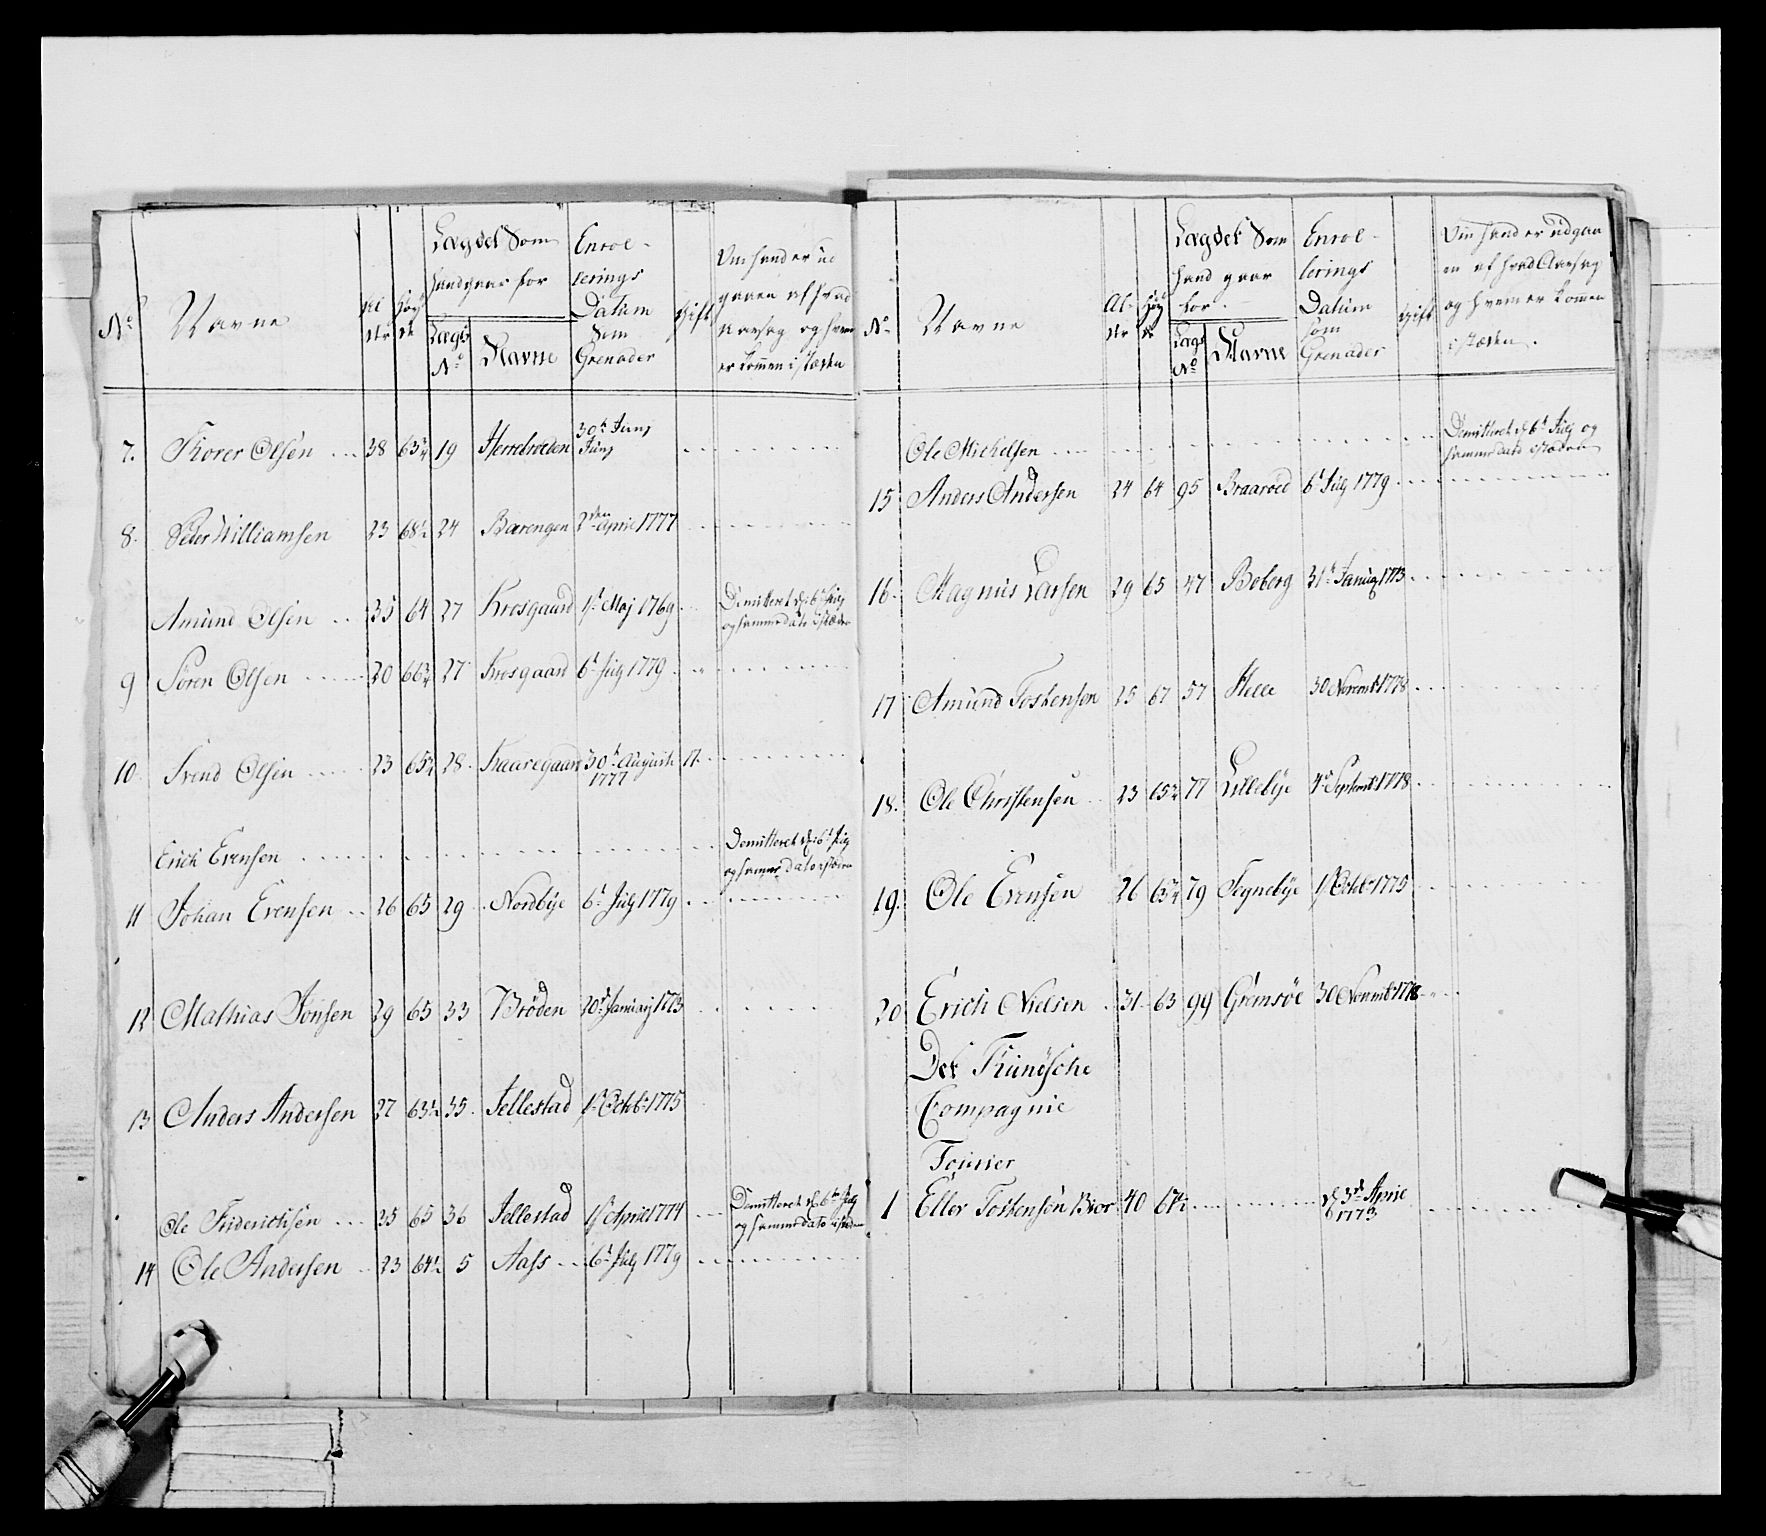 No
Navne
Lægdet Som
hand gaar for
Lægs No
Navne
Enrol-
lerings
Datum
Som
Grenader
gift
Om hand er ud
gaaen af hvad
Aarsag og hvem
er kommen i stæden
7. Torer Olsen 38 63¾ 19 Herrebröden 30te Junj
8. Peder Williamsen 23 68½ 24 Bærengen 2den April 1777
Amund Olsen 35 64 27 Krosgaard 1st Maj 1769 Demitteret d: 6t Julj
og samme dato i stæden
9 Sören Olsen 20 66¾ 27 Krosgaard 6t Julj 1779
10. Svend Olsen 23 65¾ 28 Kaaregaard 30te August
1777
Erich Evensen Demitteret d: 6t Julj
og samme dato i stæden
11 Johan Evensen 26 65 29 Nordbÿe 6t Julj 1779
12 Mathias Jonsen 29 65 33 Bröden 20de Januarj 1773
13 Anders Andersen 27 63½ 35 Jellestad 1st Octbr 1775
Ole Friderichsen 25 65 36 Jellestad 1st April 1774 Demitteret d: 6te Julj
og samme dato i stæden
14 Ole Andersen 23 64½ 5 Aass 6t Julj 1779
No
Navne
Al-
der
Lægdet Som
hand gaar
for
Lægs No
Navne
Enrol-
lerings
Datum
som
Grenader
gift
Om hand er udgaa
en af hvad Aarsag
og hvem er komen
i stæden.
Ole Michelsen Demitteret d: 6t Julj og
samme dato i stæden
15 Anders Andersen 24 64 95 Braaroed 6t Julj 1779
16. Magnus Larsen 29 65 47 Boberg 31te Januarj 1773
17 Amund Tostensen 25 67 57 Helle 30 Novembr 1778
18. Ole Christensen 23 65¾ 77 Lillebÿe 4de Septembr 1778
19. Ole Evensen 26 65¾ 79 Tegnebÿe 1st Octbr 1775
20 Erich Nielsen 31 63 99 Gremsöe 30 Novembr 1778
Det Tkunösche
Compagnie
Tömmer
1 Eller Tostensön Bior 40 67½ d: 3de April
1773